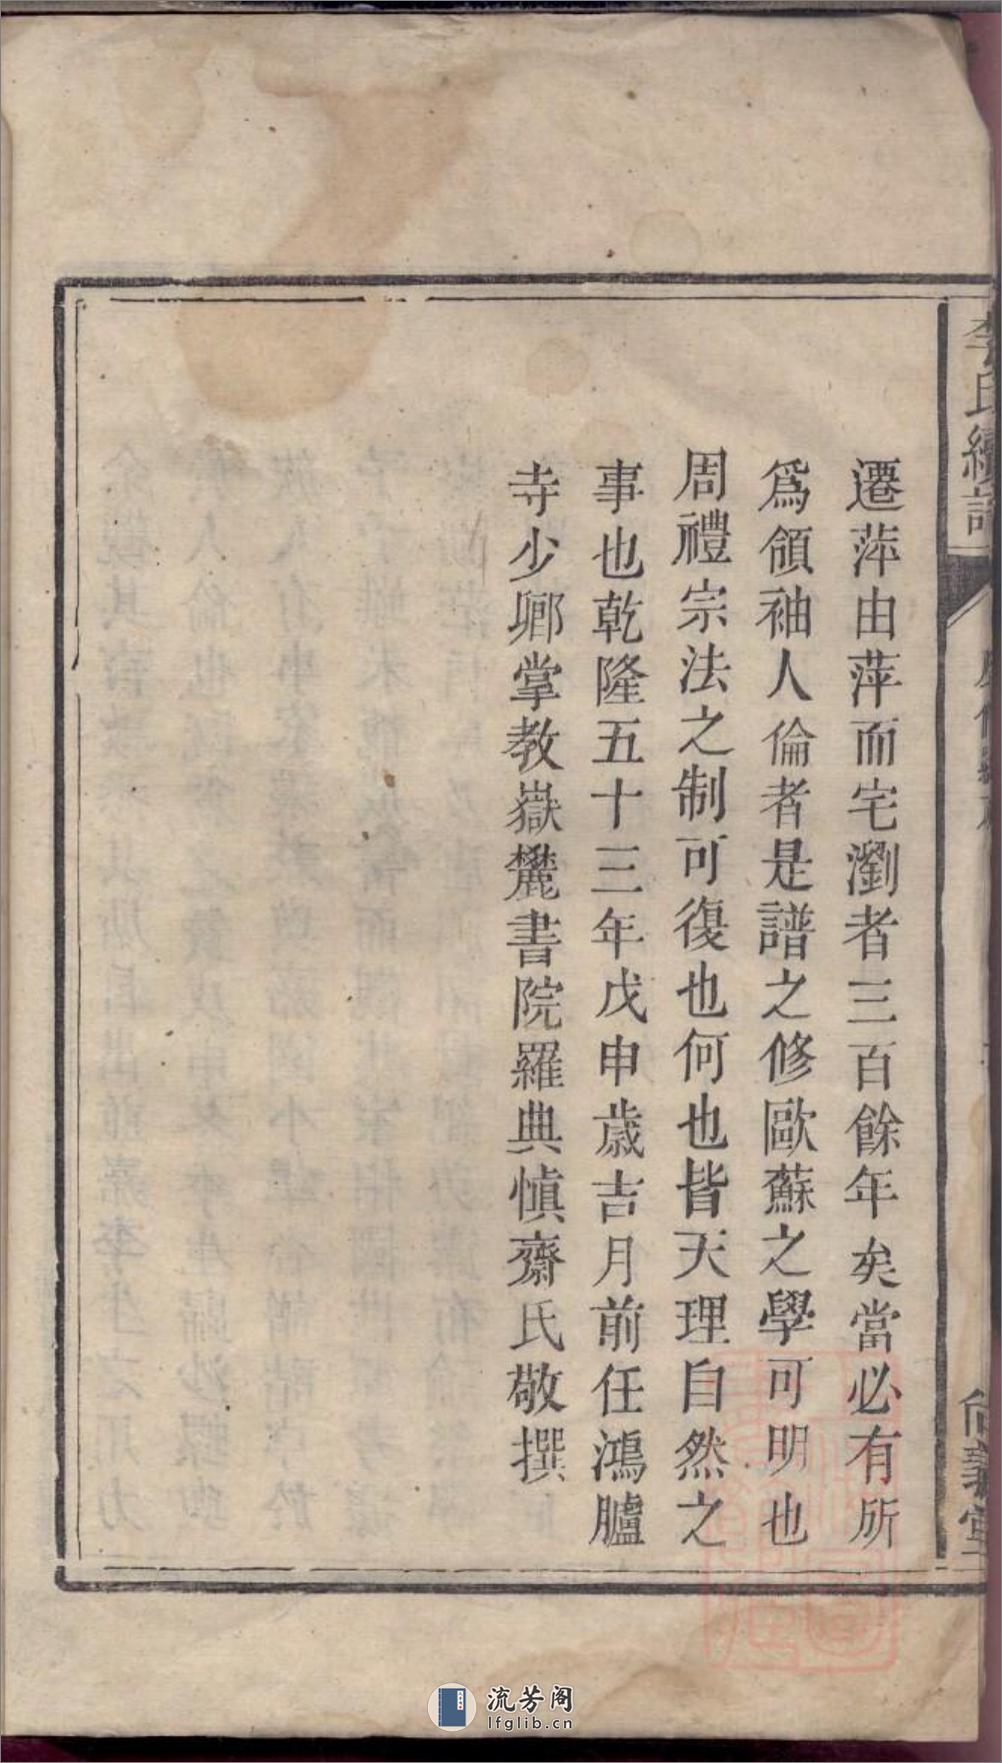 遷萍由萍而宅瀏者三百餘年矣當必有所
爲領袖人倫者是譜之修歐蘇之學可明也
周禮宗法之制可復也何也皆天理自然之
事也乾隆五十三年戊申歲吉月前任鴻臚
寺少卿掌教嶽麓書院羅典慎齋氏敬撰
李氏續譜
尚義堂
流芳阁
lfglib.cn